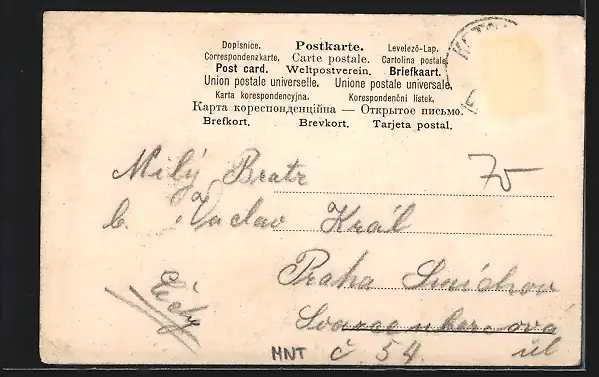 Dopisnice. Postkarte. Levelező-Lap.
Correspondenzkarte. Carte postale. Cartolina postale.
Post card. Weltpostverein. Briefkaart.
Union postale universelle. Unione postale universale.
Karta korespondencyjna. Korespondenční lístek.
Карта кореспонденційна — Открытое письмо.
Brefkort. Brevkort. Tarjeta postal.
Milý Bratr 75
b. Vaclav Král
Praha Smíchov
Čechy
Svarcenbercová
MNT č 54. ul